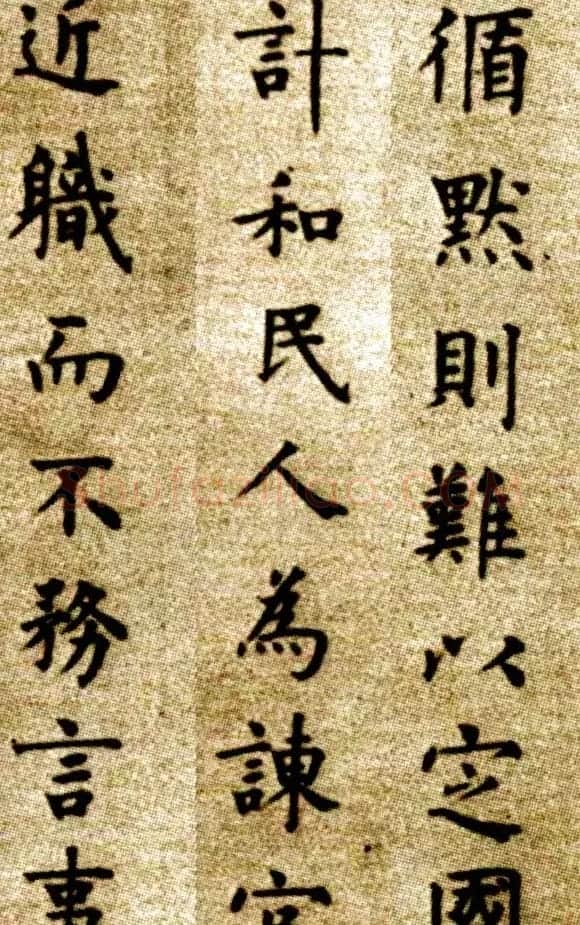 循默則難以定國
計和民人為諫官
近職而不務言事
shufaziliao.com